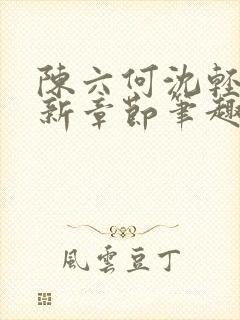 陳六何沈輕
新章節筆趣
風雲豆丁